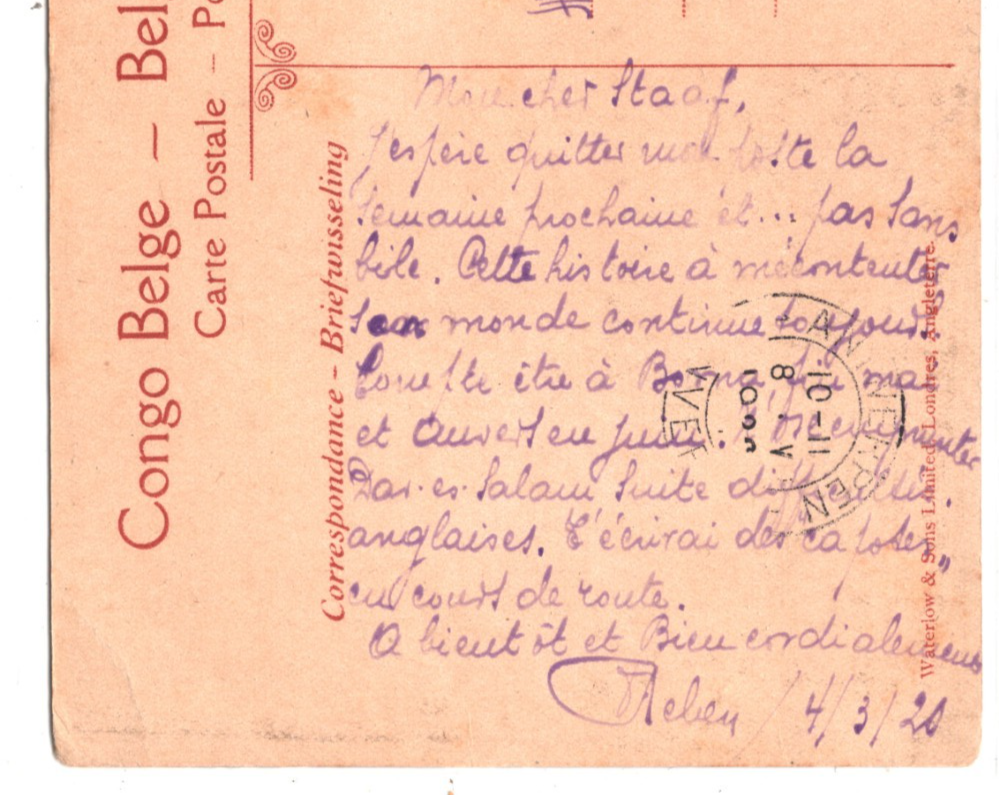 Congo Belge – Bel
Carte Postale – Po
Correspondance - Briefwisseling
Mon cher Staaf,
J'espère quitter mon poste la
semaine prochaine et... pas sans
bile. Cette histoire à mécontenter
son monde continue toujours.
Compte être à Boma fin mai
et Anvers en juin. N'ose emprunter
Dar-es-Salam suite difficultés
anglaises. T'écrirai dès "
en cours de route.
A bientôt et Bien cordialement
4/3/20
ANTWERPEN
10-11
8 . V
ANVERS
Waterlow & Sons Limited, Londres, Angleterre.